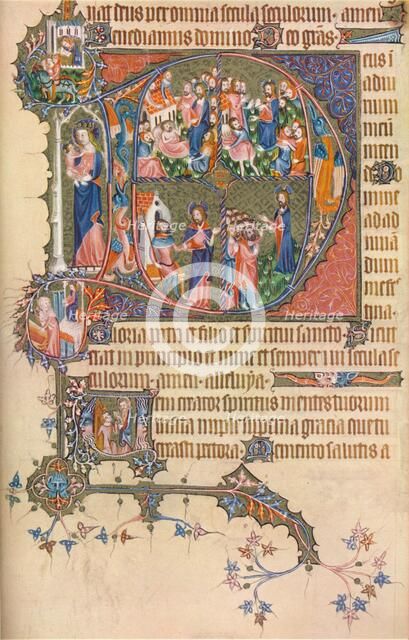 nat deus per omnia secula seculorum · amen
Benedicamus domino Deo gr̄as
eus ī
adiu
rium
meū
inten
de
Do
mine
ad ad
iuuā
dum
me fes
tina
Gloria patri et filio et spiritui sancto Sicut
erat in principio et nunc et semper in secula se
culorum amen alleluya
Veni creator spiritus mentes tuorum
visita imple superna gracia que tu
creasti pectora Memento salutis a
Heritage
Heritage
Heritage
Heritage
Heritage
Heritage